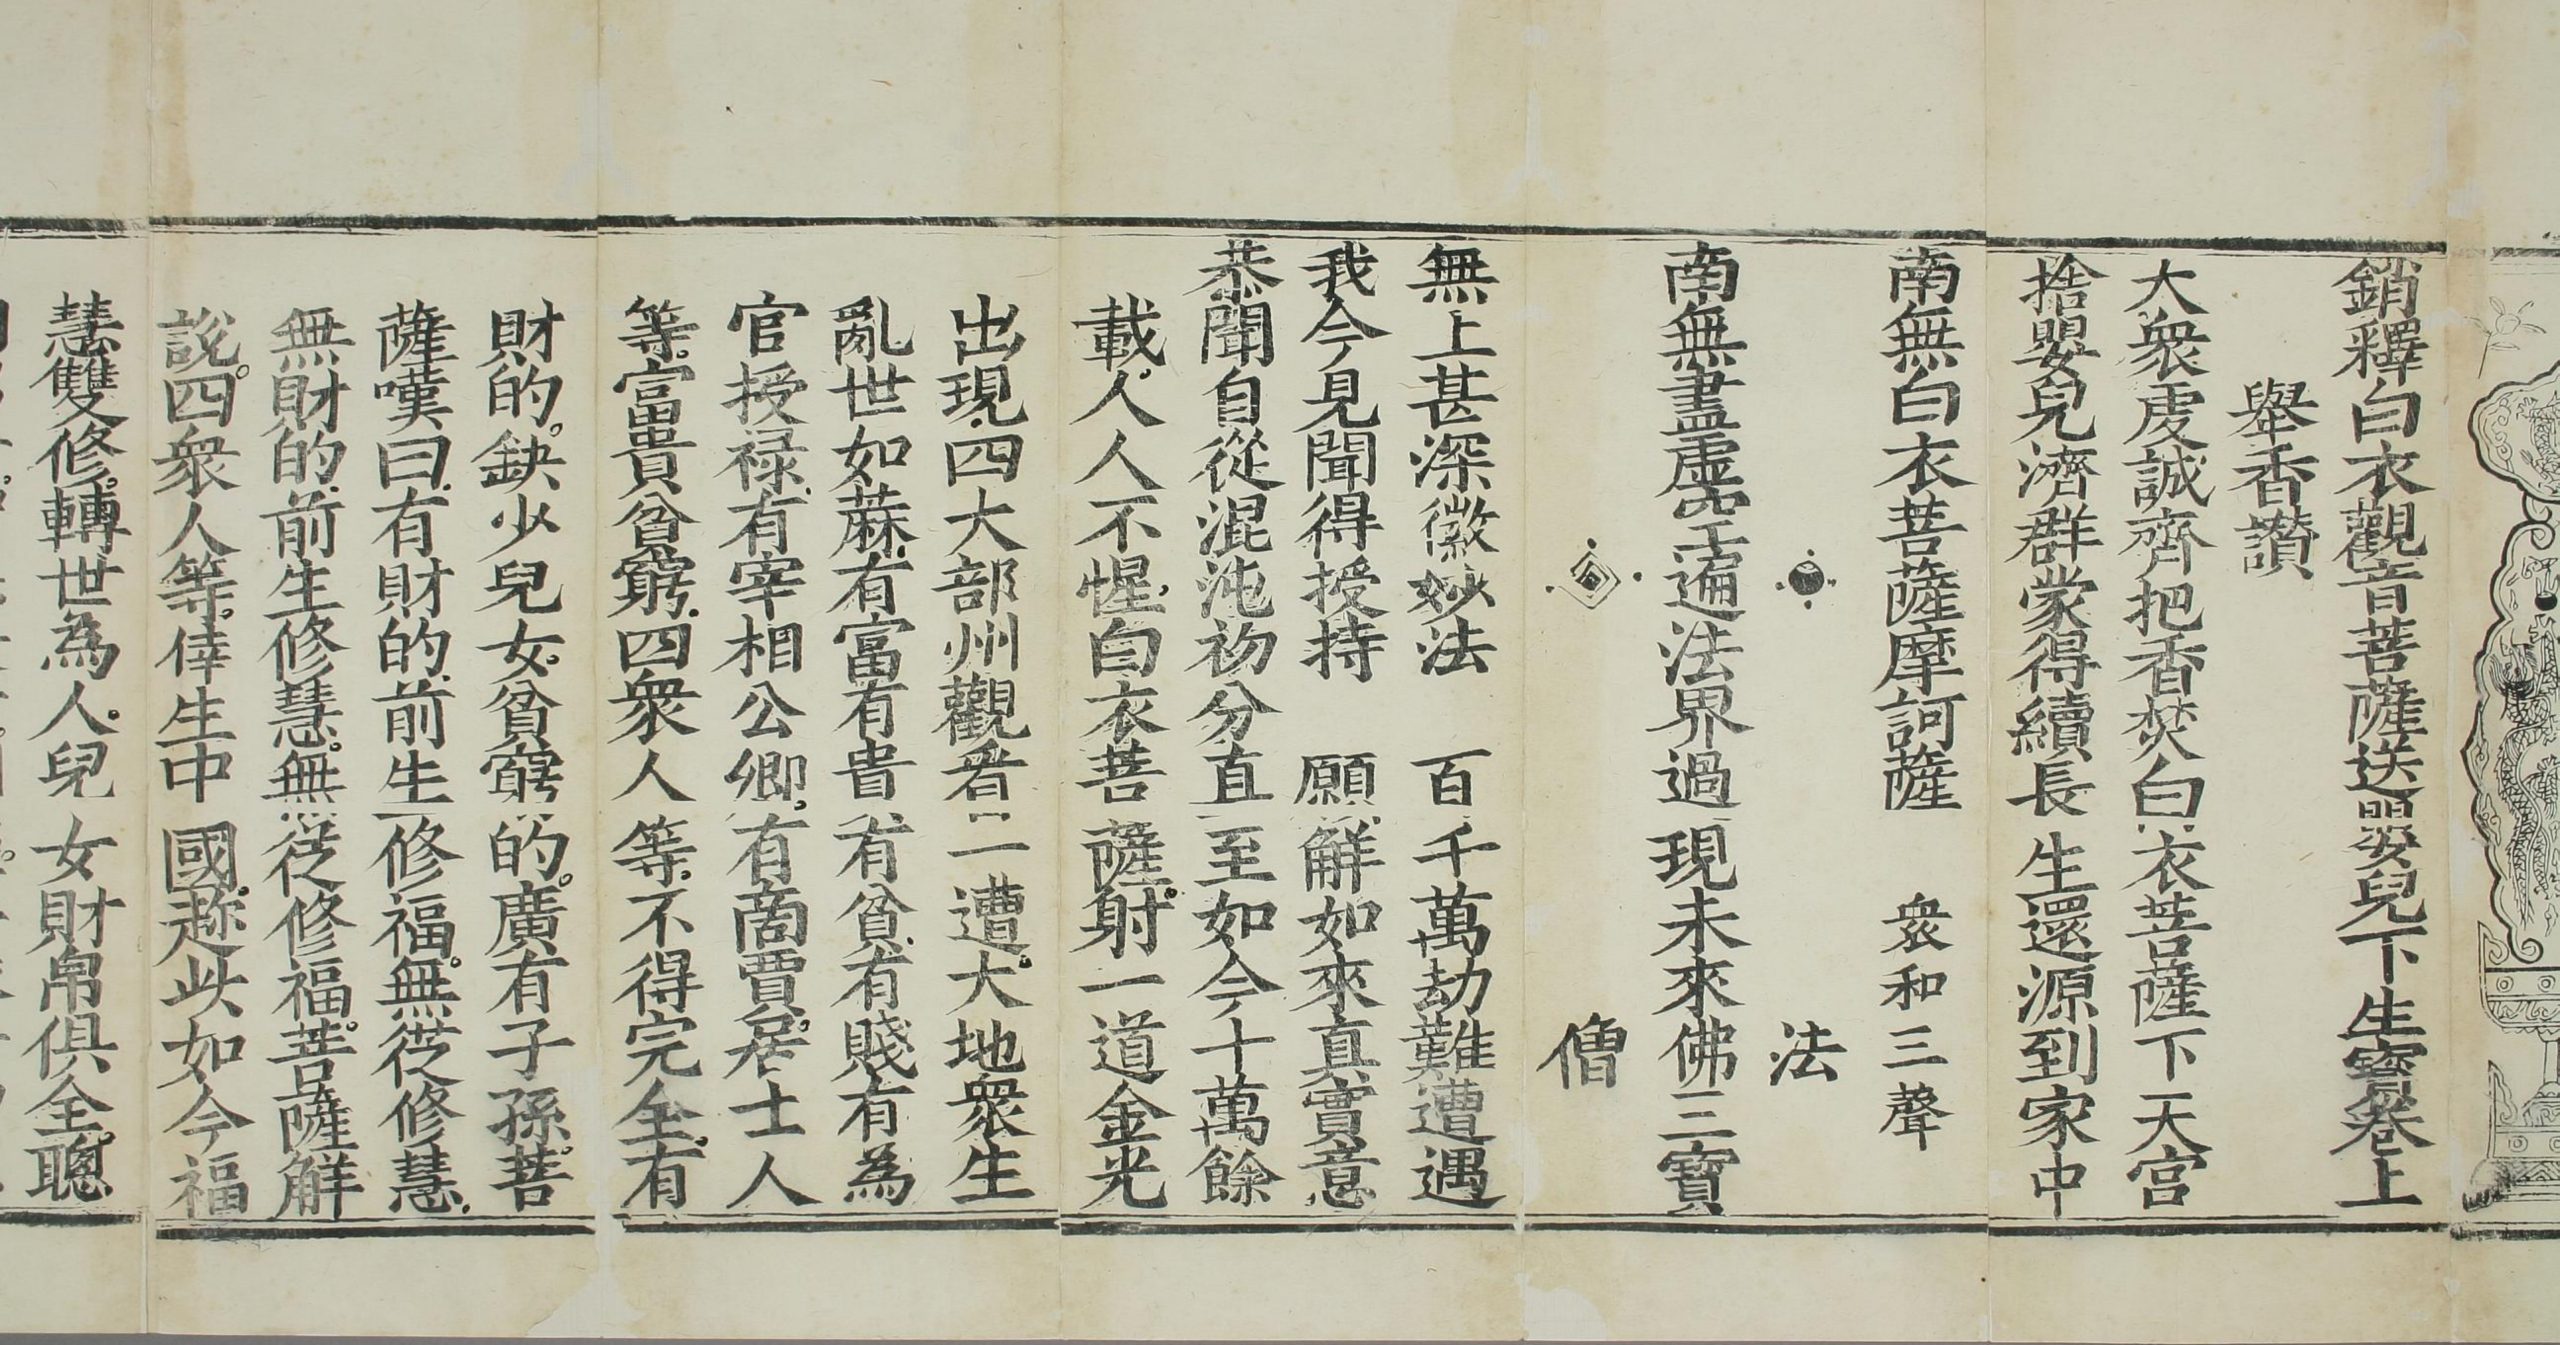 銷釋白衣觀音菩薩送嬰兒下生寳卷上
舉香讃
大衆虔誠齊把香焚白衣菩薩下天宮
捨嬰兒濟群蒙得續長生還源到家中
南無白衣菩薩摩訶薩 衆和三聲
法
南無盡虛空遍法界過現未來佛三寶
僧
無上甚深微妙法 百千萬劫難遭遇
我今見聞得授持 願解如來真實意
恭聞自從混沌初分直至如今十萬餘
載人人不惺白衣菩薩射一道金光
出現四大部州觀看一遭大地衆生
亂世如蔴有富有貴有貧有賤有為
官授禄有宰相公卿有商賈居士人
等富貴貧窮四衆人等不得完全有
財的缺少兒女貧窮的廣有子孫菩
薩嘆曰有財的前生修福無從修慧
無財的前生修慧無從修福菩薩解
說四衆人等倖生中國趂此如今福
慧雙修轉世為人兒女財帛俱全聰